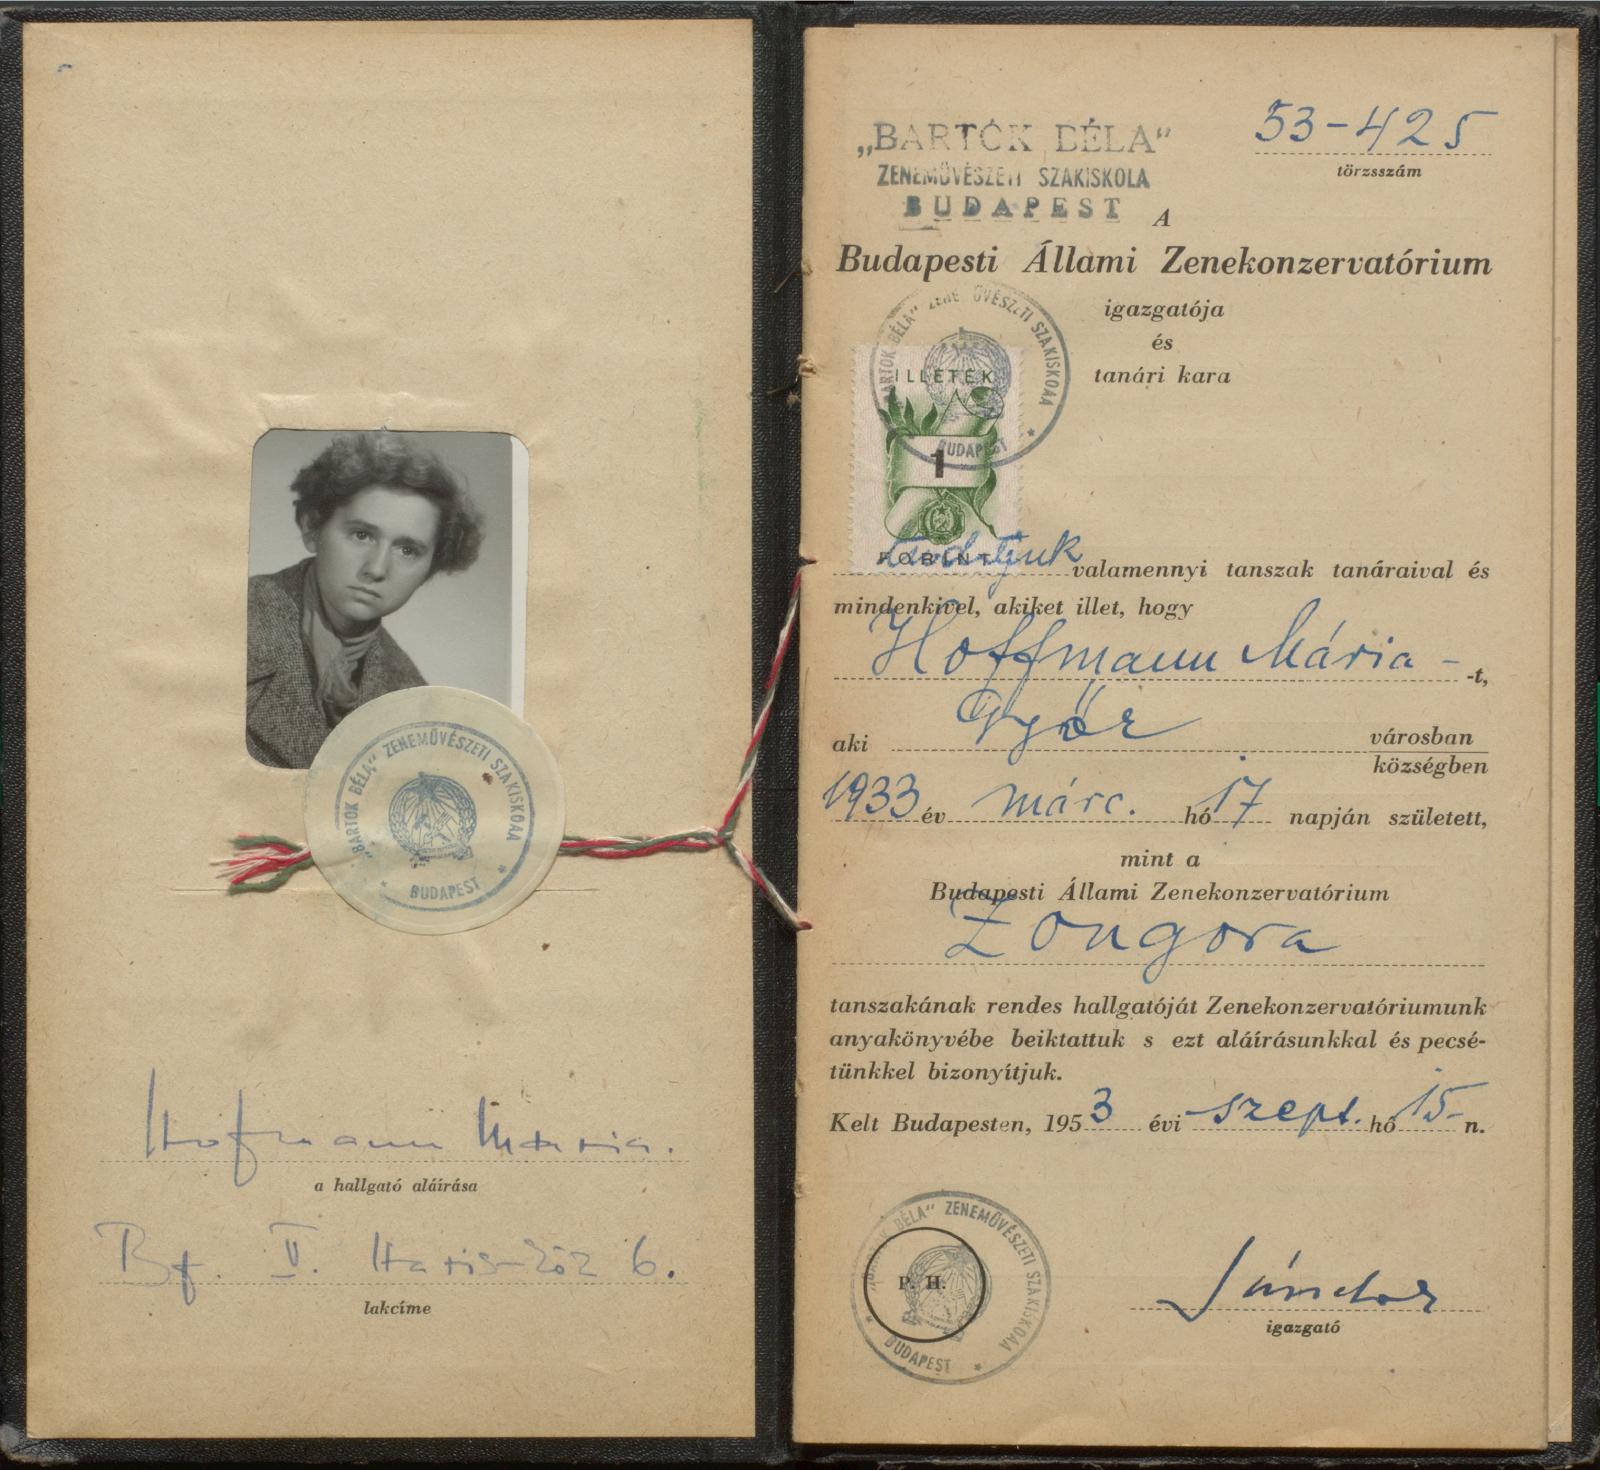 „BARTÓK BÉLA” ZENEMŰVÉSZETI SZAKISKOLA
BUDAPEST
Hofmann Mária.
a hallgató aláírása
Bp. V. Haris-köz 6.
lakcíme
„BARTÓK BÉLA”
ZENEMŰVÉSZETI SZAKISKOLA
BUDAPEST
53-425
törzsszám
A
Budapesti Állami Zenekonzervatórium
igazgatója
és
tanári kara
BARTÓK BÉLA” ZENEMŰVÉSZETI SZAKISKOLA
BUDAPEST
ILLETÉK
1
FORINT
tudatjuk valamennyi tanszak tanáraival és
mindenkivel, akiket illet, hogy
Hoffmann Mária - -t,
aki Győr városban
községben
1933 év márc. hó 17 napján született,
mint a
Budapesti Állami Zenekonzervatórium
Zongora
tanszakának rendes hallgatóját Zenekonzervatóriumunk
anyakönyvébe beiktattuk s ezt aláírásunkkal és pecsé-
tünkkel bizonyítjuk.
Kelt Budapesten, 1953 évi szept. hó 15- n.
BÉLA” ZENEMŰVÉSZETI SZAKISKOLA
P. H.
BUDAPEST
Sándor
igazgató